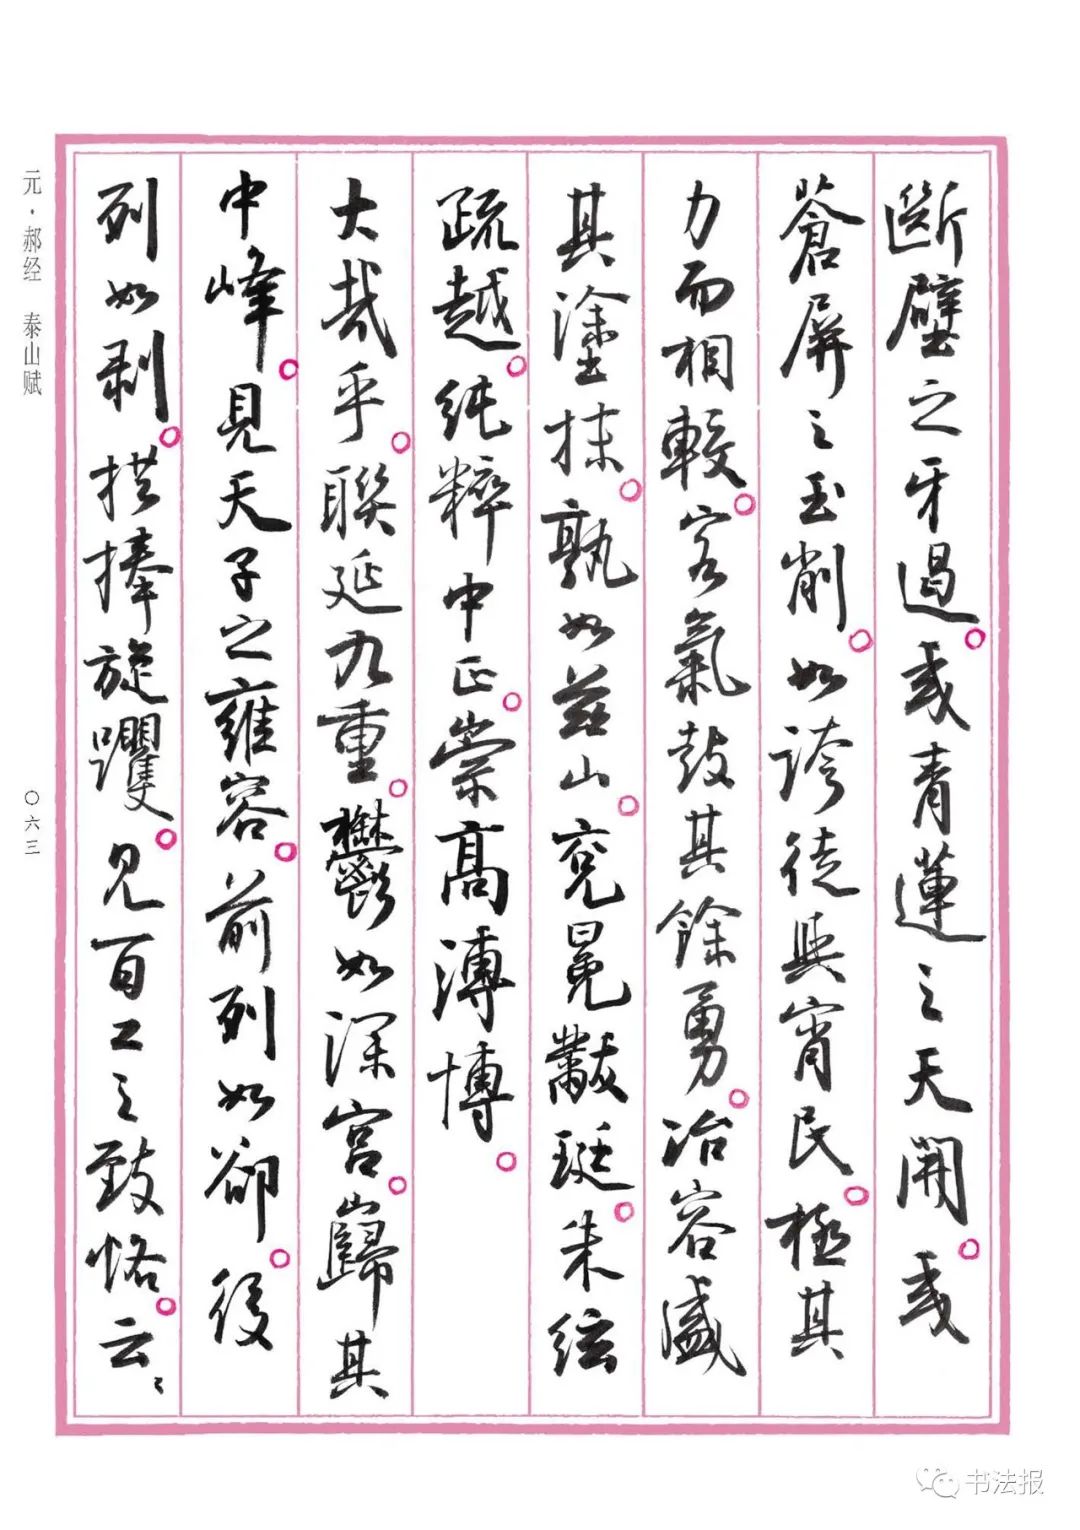 斷壁之牙過。或青蓮之天開。或
蒼屏之玉削。如誇徒與宵民。極其
力而相較。客氣鼓其餘勇。冶容盛
其塗抹。孰如茲山。袞冕黻珽。朱紘
疏越。純粹中正。崇高溥博。
大哉乎。聯延九重。鬱如深宮。巋其
中峰。見天子之雍容。前列如卻。後
列如剥。拱捧旋躩。見百工之致恪。云云
元·郝经 泰山赋
〇六三
书法报